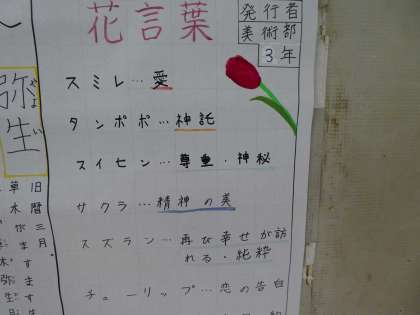 花言葉
発行者
美術部
3年
スミレ…愛
タンポポ…神託
スイセン…尊重・神秘
サクラ…精神の美
スズラン…再び幸せが訪
れる・純粋
チューリップ…恋の告白
弥生